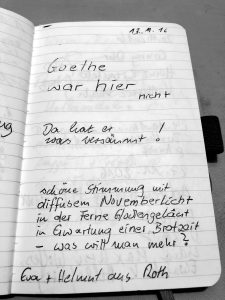 13.11.16
Goethe
war hier
nicht
Da hat er
was versäumt!
schöne Stimmung mit
diffusem Novemberlicht
in der Ferne Glockengeläut
in Erwartung einer Brotzeit
– was will man mehr?
Eva + Helmut aus Roth